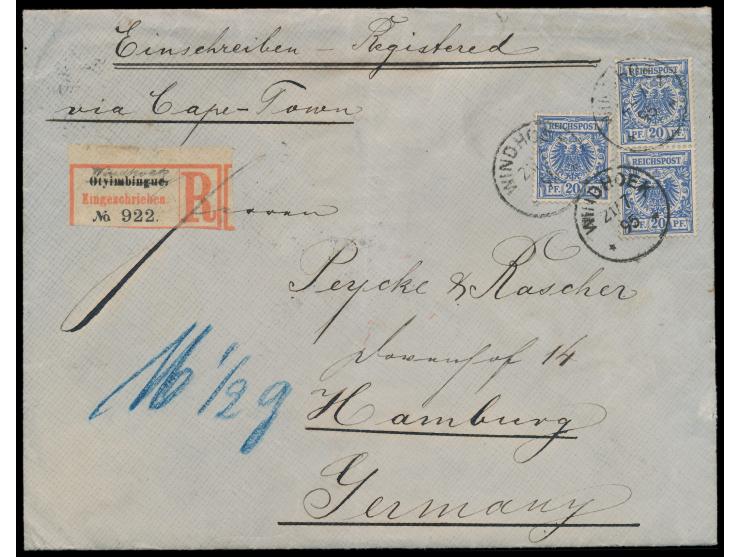 Einschreiben - Registered
via Cape-Town
Windhoek
Otyimbingue.
Eingeschrieben.
No 922.
R
REICHSPOST
PF. 20 PF.
REICHSPOST
PF. 20 PF.
REICHSPOST
PF. 20 PF.
WINDHOEK
WINDHOEK
21/7
95
Herren
Peycke & Rascher
Dovenhof 14
Hamburg
Germany
16 1/2 g